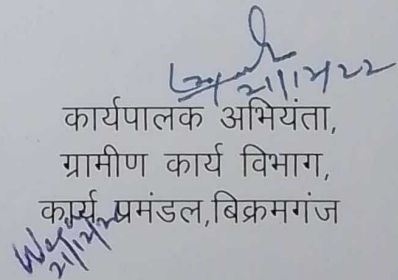 21/12/22
कार्यपालक अभियंता,
ग्रामीण कार्य विभाग,
कार्य प्रमंडल,बिक्रमगंज
21/12/22